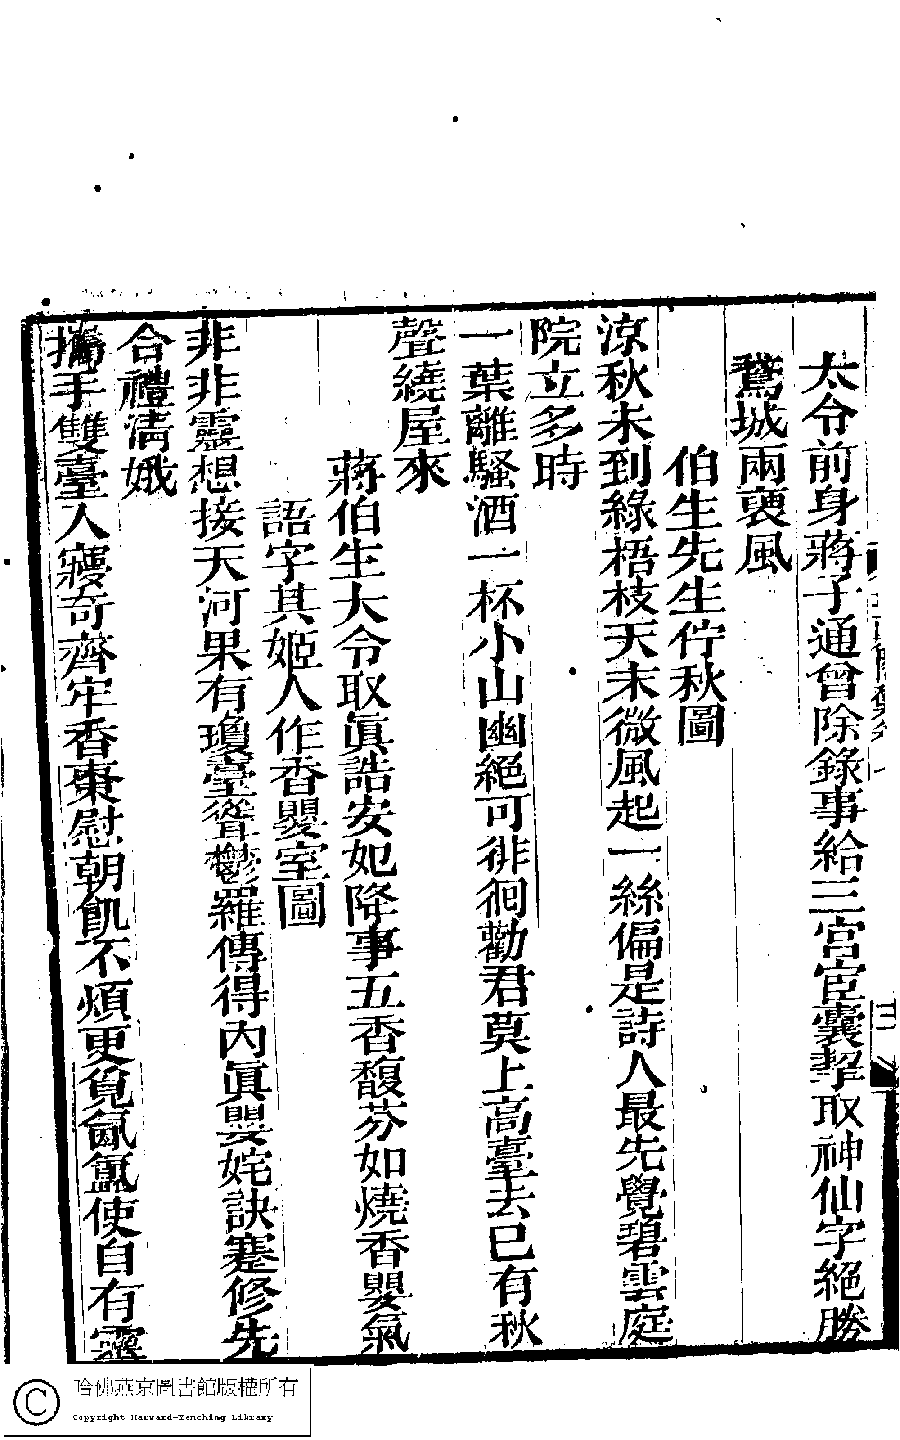 太令前身蔣子通曾除錄事給三宮宦囊挈取神仙字絕勝
鶩城兩褏風
伯生先生佇秋圖
涼秋未到綠梧枝天末微風起一絲偏是詩人最先覺碧雲庭
院立多時
一葉離騷酒一杯小山幽絕可徘徊勸君莫上高臺去已有秋
聲繞屋來
蔣伯生大令取眞誥安妃降事五香馥芬如燒香嬰氣
語字其姬人作香嬰室圖
非非靈想接天河果有瓊臺聳鬱羅傳得內眞嬰姹訣蹇修先
合禮淸娥
攜手雙臺人寢奇齊牢香棗慰朝飢不煩更覓氤氳使自有靈
哈佛燕京圖書館版權所有
Copyright Harvard-Yenching Library